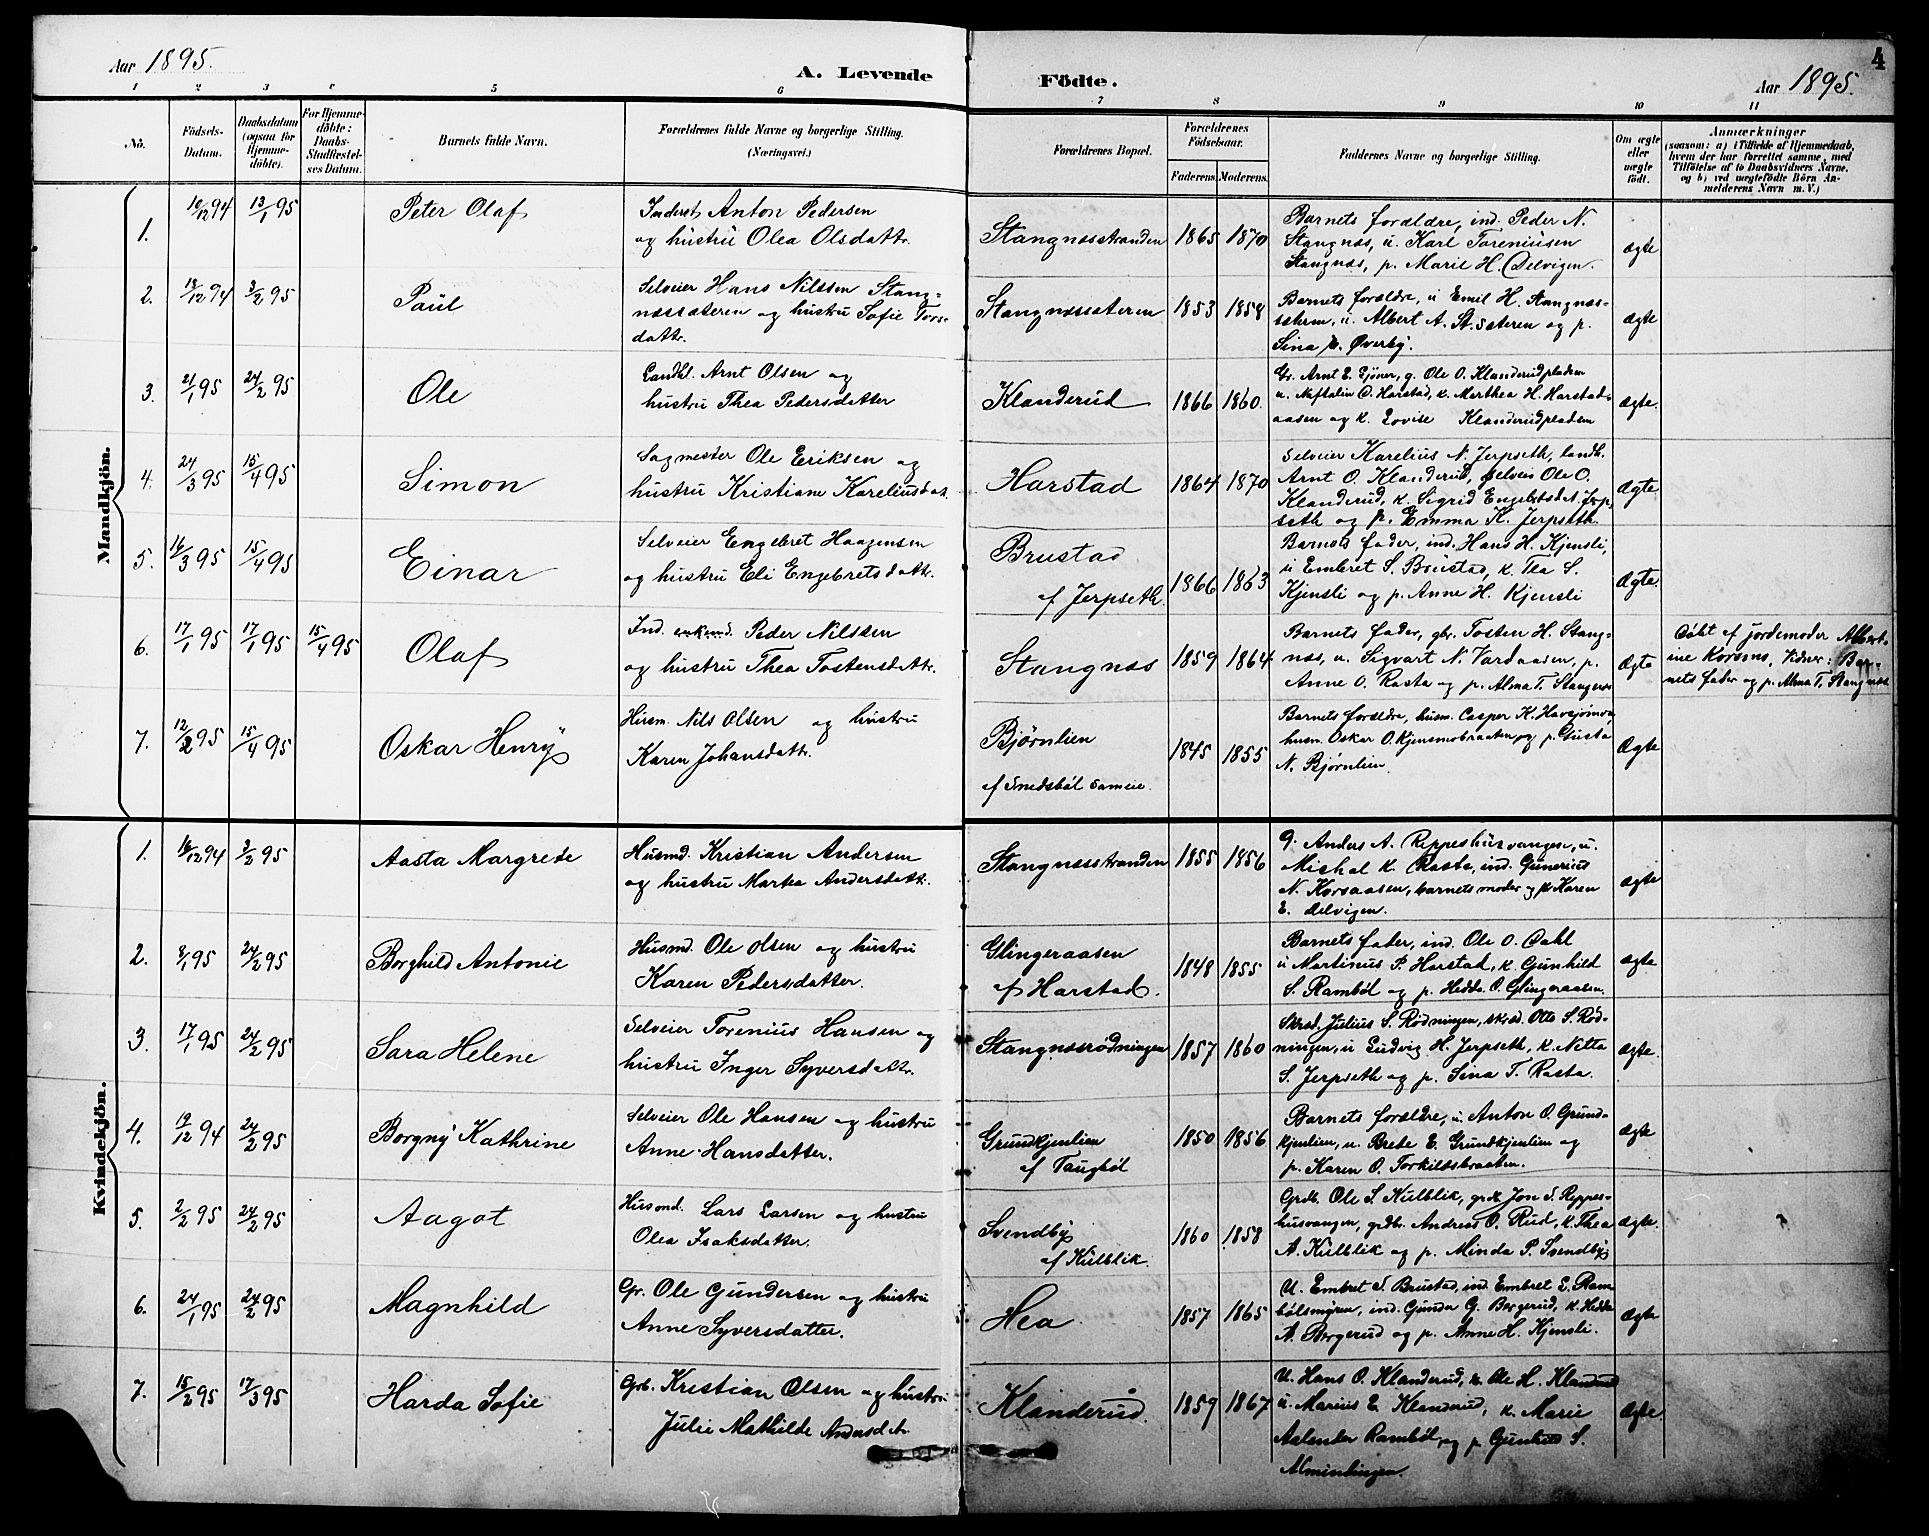 Aar 1895.
A. Levende Födte.
Aar 1895.
4
1 2 3 4 5 6 7 8 9 10 11
No.
Födsels-
Datum.
Daabsdatum
(ogsaa for
Hjemme-
döbte).
For Hjemme-
döbte:
Daabs-
Stadfæstel-
ses Datum.
Barnets fulde Navn.
Forældrenes fulde Navne og borgerlige Stilling.
(Næringsvei.)
Forældrenes Bopæl.
Forældrenes
Födselsaar.
Faderens. Moderens.
Faddernes Navne og borgerlige Stilling.
Om ægte
eller
uægte
födt.
Anmærkninger
(saasom: a) i Tilfælde af Hjemmedaab,
hvem der har forrettet samme, med
Tilföielse af to Daabsvidners Navne,
og b) ved uægtefödte Börn An-
melderens Navn m. V.)
Mandkjön.
1. 10/12 94 13/1 95 Peter Olaf
Inderst Anton Pedersen
og hustru Olea Olsdattr.
Stangnæsstranden 1865 1870
Barnets forældre, ind. Peder N.
Stangnæs, u. Karl Toreniusen
Stangnæs, p. Marie H. Delvigen.
ægte
2. 13/12 94 3/2 95 Paul
Selveier Hans Nilssen Stang-
næssæteren og hustru Sofie Tors-
dattr.
Stangnæssæteren 1853 1858
Barnets forældre, u Emil H. Stangnæs-
sæteren, u. Albert A. St.sæteren og p.
Sina Øverby.
ægte
3. 21/1 95 24/2 95 Ole
Landhl. Arnt Olsen og
hustru Thea Pedersdatter
Klanderud 1866 1860.
Gr. Arnt E. Sjöner, g. Ole O. Klanderudpladsen
u. Naftalin O. Harstad, k. Marthea H. Harstad-
aasen og k. Lovise Klanderudpladsen
ægte.
4. 24/3 95 15/4 95 Simon
Sagmester Ole Eriksen og
hustru Kristiane Kareliusdat.
Harstad 1864 1870
Selveier Karelius N. Jerpseth, landh.
Arnt O. Klanderud, selveier Ole O.
Klanderud, k. Sigrid Engebretsdt. Jerp-
seth og p. Emma K. Jerpseth.
Ægte
5. 16/3 95 15/4 95 Einar
Selveier Engebret Haagensen
og hustru Eli Engebretsdattr.
Brustad
af Jerpseth. 1866 1863
Barnets fader, ind. Hans H. Kjensli,
u Embret S. Brustad, k. Ida S.
Kjensli og p. Anne H. Kjensli
Ægte.
6. 17/1 95 17/1 95 15/4 95 Olaf
Ind. Peder Nilssen
og hustru Thea Tostensdattr.
Stangnæs 1859 1864
Barnets fader, gbr. Tosten H. Stang-
næs, u. Sigvart N. Vardaasen, p.
Anne O. Rasta og p. Alma T. Stangnæs
Ægte
Döbt af jordemoder Albert-
ine Korsens, Vidner: Bar-
nets fader og p. Alma T. Stangnæs
7. 12/2 95 15/4 95 Oskar Henry
Husm. Nils Olsen og hustru
Karen Johansdattr.
Bjørnlien
af Snedsböl Sameie. 1845 1855
Barnets forældre, husm. Casper K. Havsjömoen
husm. Oskar O. Kjensmobraaten og p. Gusta
N. Bjørnlien.
Ægte
Kvindekjön.
1. 16/12 94 3/2 95 Aasta Margrete
Husmd. Kristian Andersen
og hustru Martea Andersdattr.
Stangnæsstranden 1855 1856
g. Anders A. Reppeshusvangen, u.
Michal K. Rasta, ind. Gunerius
N. Korsaasen, barnets moder og p. Karen
E. Delvigen.
ægte
2. 8/1 95 24/2 95 Borghild Antonie
Husmd. Ole Olsen og hustru
Karen Pedersdatter.
Glingeraasen
af Harstad. 1848 1855
Barnets fader, ind. Ole O. Dahl
u Martinus P. Harstad, k. Gunhild
S. Ramböl og p. Hedda O. Glingeraasen.
ægte
3. 17/1 95 24/2 95 Sara Helene
Selveier Torenius Hansen og
hustru Inger Syversdattr.
Stangnæsrødningen 1857 1860
Skræd. Julius S. Rødningen, skræd. Otto S. Rød-
ningen, u Ludvig H. Jerpseth, k. Netta
S. Jerpseth og p. Sina T. Rasta.
ægte.
4. 19/12 94 24/2 95 Borgny Kathrine
Selveier Ole Hansen og hustru
Anne Hansdatter.
Grundkjenlien
af Taugböl 1850 1856
Barnets forældre, u. Anton O. Grund-
kjenlien, u. Brede E. Grundkjenlien og
p. Karen O. Torkildsbraaten.
ægte
5. 2/2 95 24/2 95 Aagot
Husmd. Lars Larsen og hustru
Olea Isaksdatter.
Svendby
af Kulblik. 1860 1858
Grdb. Ole S. Kulblik, grdb. Jon S. Reppes-
husvangen, grdb. Andreas O. Rud, k. Thea
A. Kulblik og p. Minda P. Svendby
Ægte.
6. 24/1 95 24/2 95 Magnhild
Gr. Ole Gundersen og hustru
Anne Syversdatter.
Hea 1857 1865
U. Embret S. Brustad, ind. Embret E. Ram-
bölsmyren, ind. Gunder G. Borgerud, k. Hedda
A. Borgerud og p. Anne H. Kjensli.
Ægte
7. 15/2 95 17/3 95 Harda Sofie
Grb. Kristian Olsen og hustru
Julie Mathilde Andersdtr.
Klanderud. 1859 1867
U. Hans O. Klanderud, u. Ole H. Klanderud
u. Marius E. Klanderud, k. Marie
Aslander Ramböl, og p Gunhild S.
Almindingen.
Ægte